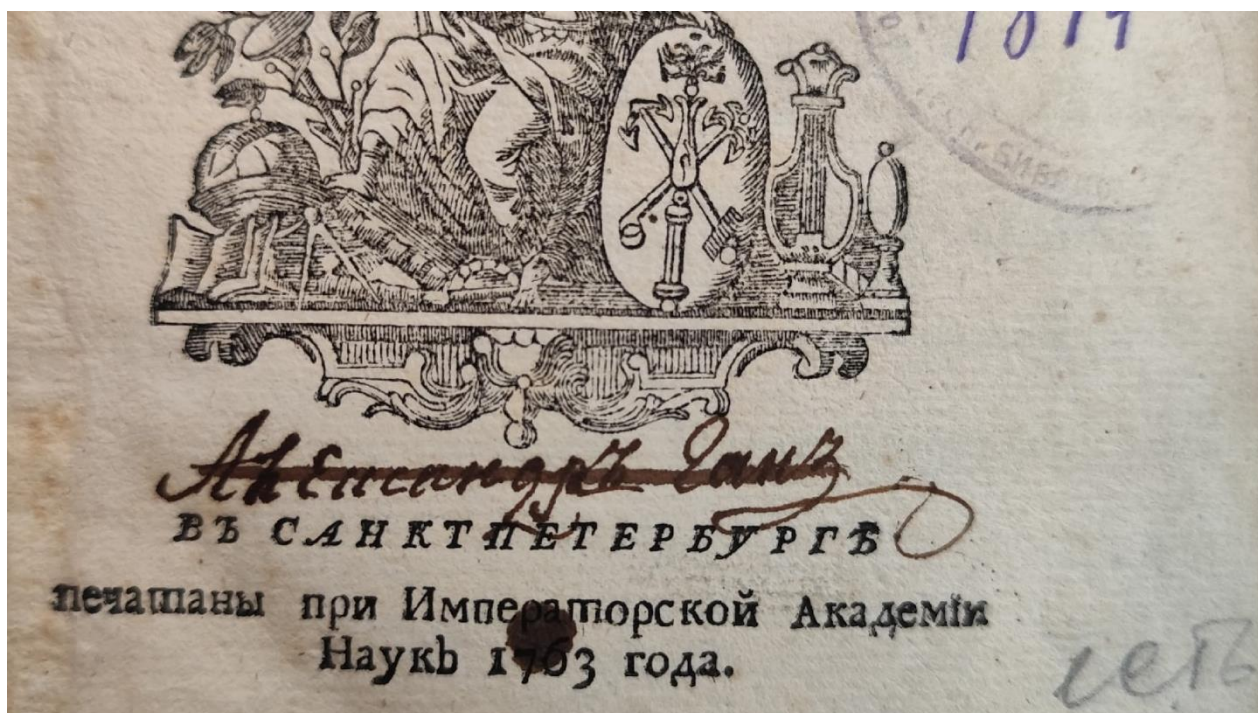 Александръ
ВЪ САНКТПЕТЕРБУРГѢ
печатаны при Императорской Академїи
Наукъ 1763 года.